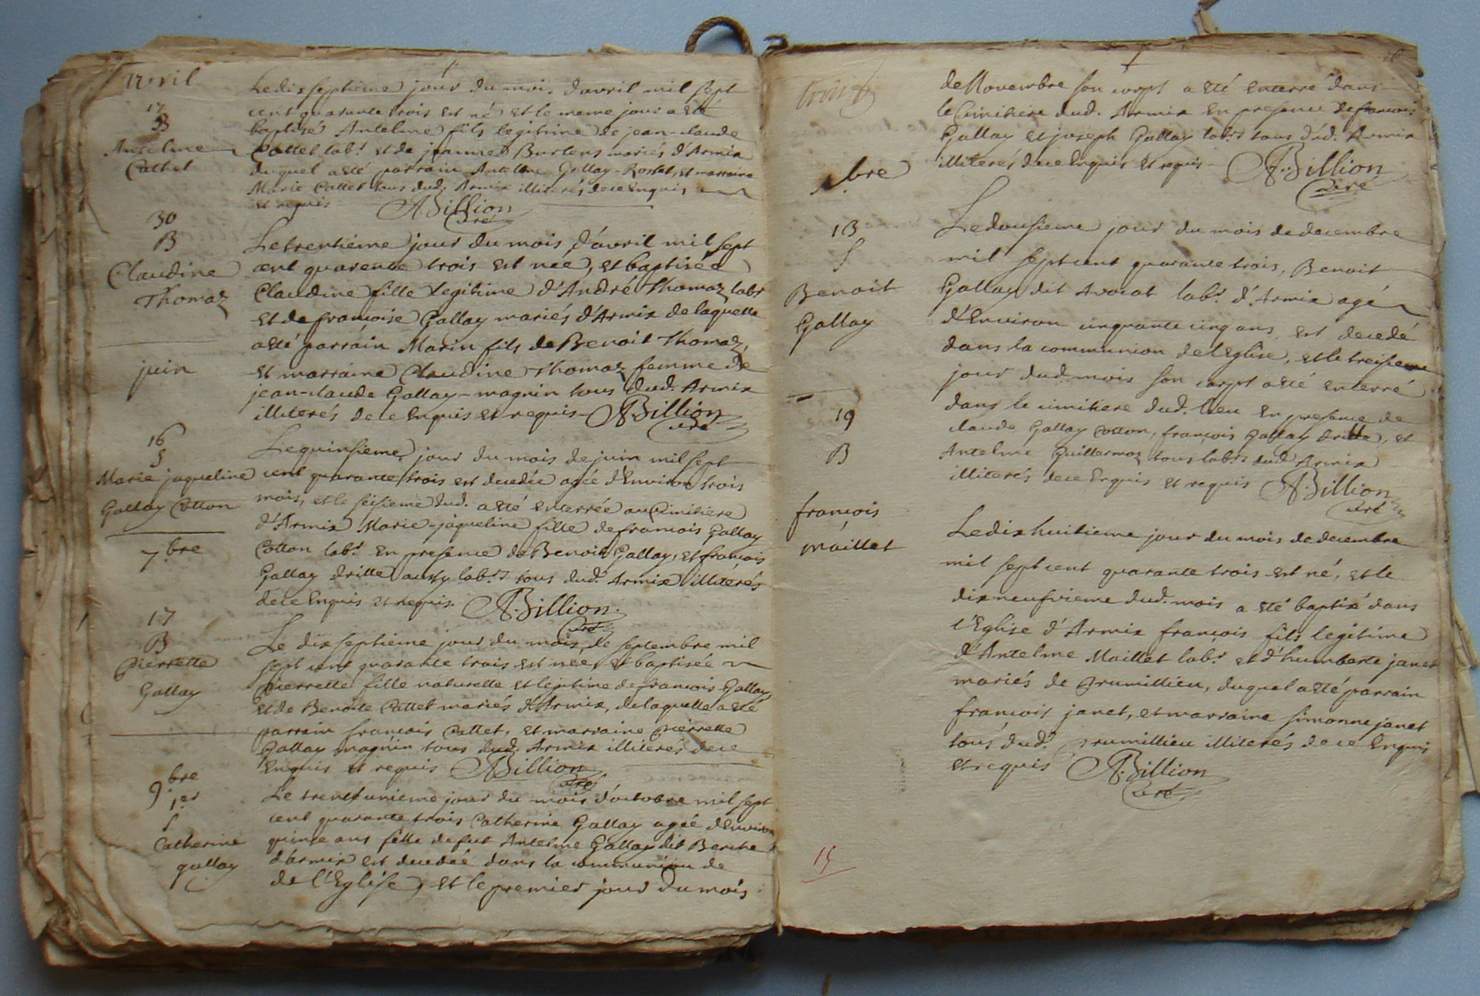 Avril
17
B
Anselme
Cattet
Le dix septieme jour du mois davril mil sept
cent quarante trois est né et le meme jour a été
baptisé Antelme fils legitime de jean-claude
Cattet labr. et de jeanne mariés d'Armix
duquel a été parrain Antelme Gallay et marraine
Marie Cattet tous dud. Armix illiterés de ce Enquis
et requis ABillion
curé
30
B
Claudine
Thomaz
Le trentieme jour du mois d'avril mil sept
cent quarente trois est née, et baptisée
Claudine fille legitime d'André Thomaz labr
et de francoise Gallay mariés d'Armix de laquelle
a été parrain Marin fils de Benoit Thomaz,
et marraine Claudine Thomaz femme de
jean-claude Gallay-magnin tous dud. Armix
illiterés de ce Enquis et requis ABillion
curé
juin
16
S
Marie jaqueline
Gallay Cotton
Le quinsieme jour du mois de juin mil sept
cent quarante trois est decedée agée d'Environ trois
mois, et le seisieme dud. a été enterrée au Cimitiere
d'Armix Marie-jaqueline fille de francois Gallay
Cotton labr. En presence de Benoit Gallay, et francois
Gallay dritte aussy labrs. tous dud. Armix illiterés
de ce Enquis et requis. ABillion.
curé
7.bre
17
B
pierrette
Gallay
Le dix septieme jour du mois de septembre mil
sept cent quarante trois est née, et baptisée
pierrette fille naturelle et legitime de francois Gallay
et de Benoite Cattet mariés d'Armix, de laquelle a été
parrain francois Cattet, et marraine pierrette
Gallay magnin tous dud. Armix illiterés de ce
Enquis et requis ABillion
curé
9.bre
1.er
S
Catherine
gallay
Le trente unieme jour du mois d'octobre mil sept
cent quarante trois Catherine Gallay agée d'Environ
quinse ans fille de fut Antelme Gallay dit
d'armix est decedée dans la communion de
de l'Eglise, et le premier jour du mois
de Novembre son corps a été enterré dans
le Cimitiere dud. Armix En presence de francois
Gallay et joseph Gallay labrs tous dud. Armix
illiterés de ce Enquis et requis ABillion
curé
bre
13
S
Benoit
Gallay
Le dousieme jour du mois de decembre
mil sept cent quarante trois, Benoit
Gallay dit Avocat labr. d'Armix agé
d'Environ cinquante cinq ans, est decedé
dans la communion de l'Eglise, et le treisieme
jour dud. mois son corps a été enterré
dans le cimitiere dud. lieu En presence de
claude Gallay Cotton, francois Gallay dritte, et
Antelme Guillermoz tous labrs dud. Armix
illiterés de ce Enquis et requis ABillion
curé
19
B
françois
maillet
Le dix huitieme jour du mois de decembre
mil sept cent quarante trois est né, et le
dix neufvieme dud. mois a été baptisé dans
l'Eglise d'Armix françois fils legitime
d'Antelme Maillet labr. et d'humberte janet
mariés de prumillieu, duquel a été parrain
francois janet, et marraine simonne janet
tous dud. prumillieu illiterés de ce Enquis
et requis ABillion
curé
15